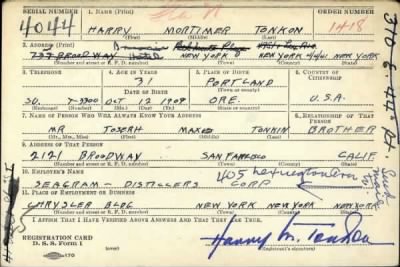 SERIAL NUMBER 1. NAME (Print) ORDER NUMBER
4044 HARRY MORTIMER TONKON 1418
(First) (Middle) (Last)
2. ADDRESS (Print)
737 BROADWAY NEW YORK NEW YORK NEW YORK
(Number and street or R. F. D. number) (Town) (County) (State)
3. TELEPHONE 4. AGE IN YEARS 5. PLACE OF BIRTH 6. COUNTRY OF CITIZENSHIP
31 PORTLAND
DATE OF BIRTH (Town or county)
SU. 7-3300 OCT 12 1909 ORE. U.S.A.
(Exchange) (No.) (Mo.) (Day) (Yr.) (State or country)
7. NAME OF PERSON WHO WILL ALWAYS KNOW YOUR ADDRESS 8. RELATIONSHIP OF THAT PERSON
MR JOSEPH MAX TONKIN BROTHER
(Mr., Mrs., Miss) (First) (Middle) (Last)
9. ADDRESS OF THAT PERSON
2121 BROADWAY SAN FRANCISCO CALIF.
(Number and street or R. F. D. number) (Town) (County) (State)
10. EMPLOYER'S NAME
SEAGRAM - DISTILLERS CORP 405 Lexington
11. PLACE OF EMPLOYMENT OR BUSINESS
CHRYSLER BLDG NEW YORK NEW YORK NEW YORK
(Number and street or R. F. D. number) (Town) (County) (State)
I AFFIRM THAT I HAVE VERIFIED ABOVE ANSWERS AND THAT THEY ARE TRUE.
REGISTRATION CARD
D. S. S. Form 1
Harry M. Tonkon
(Registrant's signature)